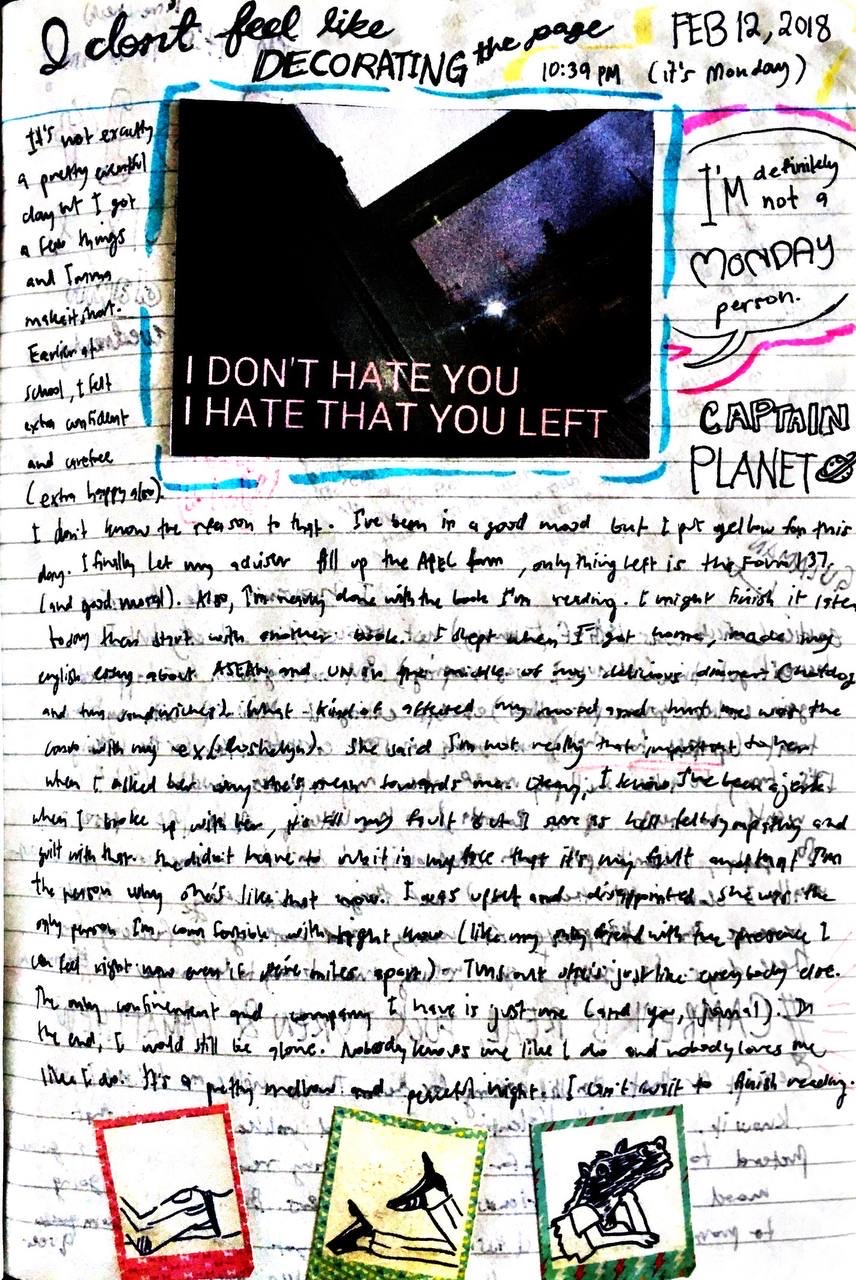 I don't feel like
DECORATING the page
FEB 12, 2018
10:39 PM (it's Monday)
It's not exactly
a pretty eventful
day but I got
a few things
and Imma
make it short.
Earlier at
school, I felt
extra confident
and carefree
(extra happy also).
I DON'T HATE YOU
I HATE THAT YOU LEFT
I'M definitely
not a
MONDAY
person.
CAPTAIN
PLANET
I don't know the reason to that. I've been in a good mood but I put yellow for this
day. I finally let my adviser fill up the form, only thing left is the Form 137
(and good moral). Also, I'm nearly done with the book I'm reading. I might finish it later
today then start with another book. I slept when I got home, made my
english essay about ASEAN and UN in the middle of my delicious dinner (hotdog
and two sandwiches). What kind of affected my mood and hurt me was the
convo with my ex. She said I'm not really that important to her
when I asked her why she's mean towards me. Okay, I know I've been a jerk
when I broke up with her, it's all my fault but I sure as hell felt sympathy and
guilt with that. She didn't have to rub it in my face that it's my fault and that I'm
the person why she's like that now. I was upset and disappointed. She was the
only person I'm comfortable with right now (like my only friend with the presence I
can feel right now even if we're miles apart). Turns out she's just like everybody else.
The only and company I have is just me (and you, journal). In
the end, I would still be alone. Nobody knows me like I do and nobody loves me
like I do. It's a pretty mellow and peaceful night. I can't wait to finish reading.